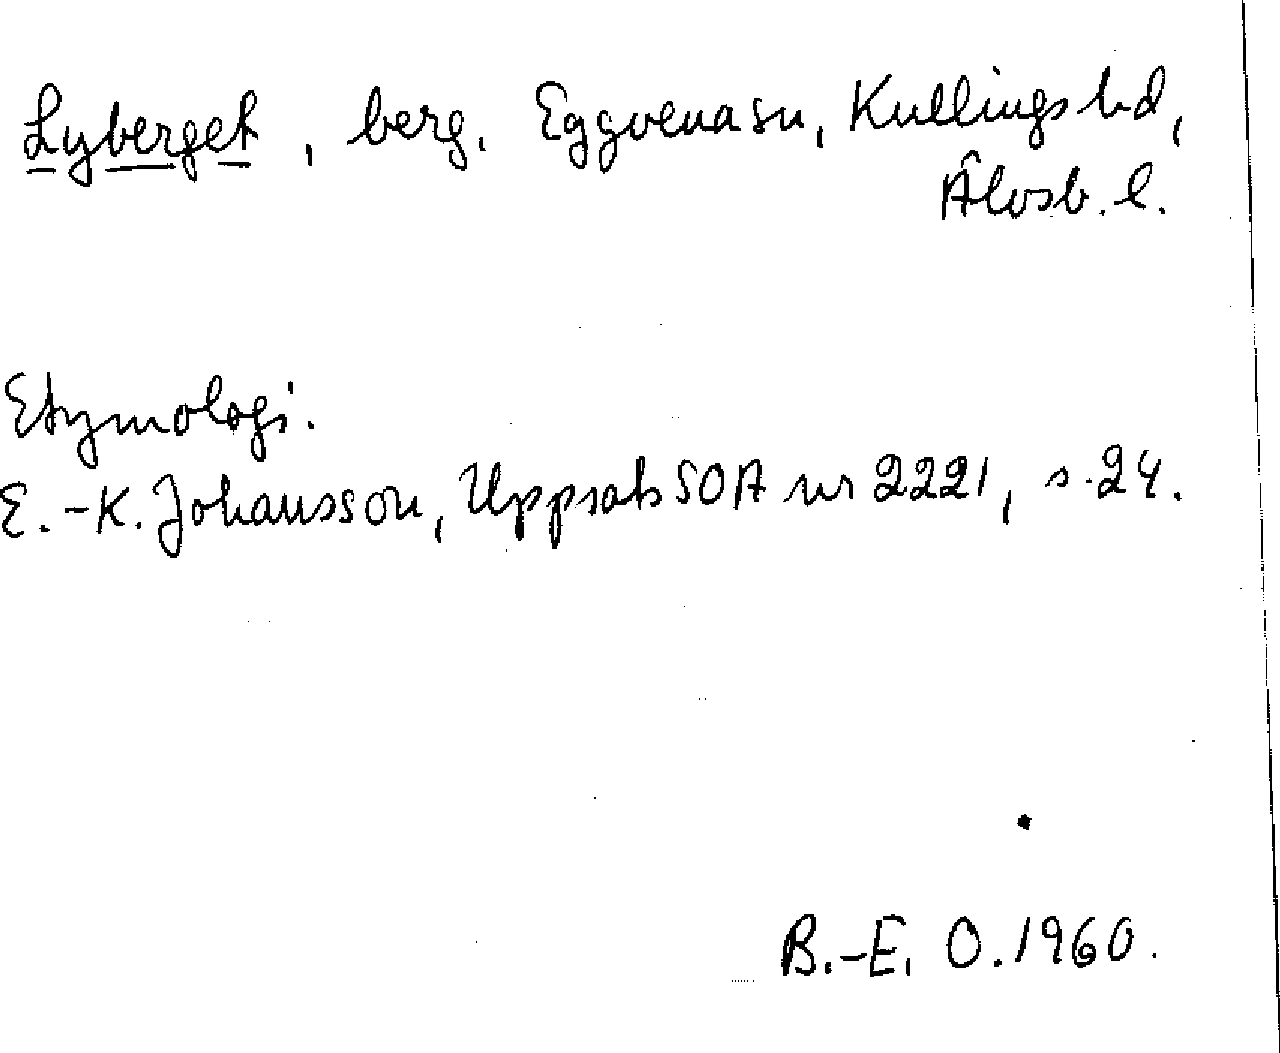 Lyberget, berg. Eggvena sn, Kullings hd,
Älvsb. l.
Etymologi.
E.-K. Johansson, Uppsats SOA nr 2221, s. 24.
B.-E. O. 1960.